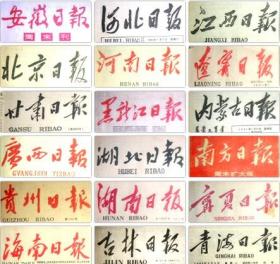 安徽日报
周末刊
河北日报
HEBEI RIBAO
江西日报
JIANGXI RIBAO
北京日报
河南日报
HENAN RIBAO
辽宁日报
LIAONING RIBAO
甘肃日报
GANSU RIBAO
黑龙江日报
内蒙古日报
廣西日報
GVANGJSIH YIZBAO
湖北日报
HUBEI RIBAO
南方日报
周末扩大版
贵州日报
GUIZHOU RIBAO
湖南日報
HUNAN RIBAO
宁夏日报
NINGXIA RIBAO
海南日報
吉林日报
JILIN RIBAO
青海日报
QINGHAI RIBAO